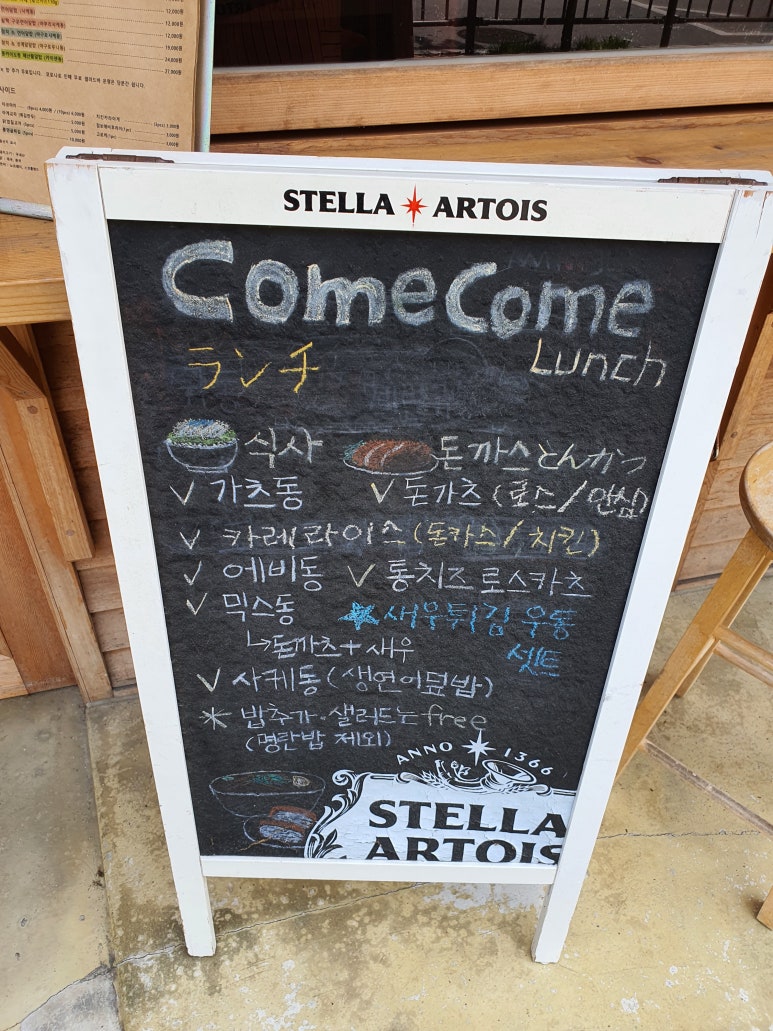 12,000원
18,000원
24,000원
27,000원
사이드
STELLA ARTOIS
ComeCome
ランチ Lunch
식사 돈까스 とんかつ
✓ 가츠동 ✓ 돈가츠 (로스/안심)
✓ 카레라이스 (돈카스/치킨)
✓ 에비동 ✓ 통치즈로스카츠
✓ 믹스동 ★새우튀김 우동
↳돈까츠+새우 셋트
✓ 사케동 (생연어덮밥)
* 밥추가·샐러드는 free
(명란밥 제외)
ANNO 1366
STELLA
ARTOIS